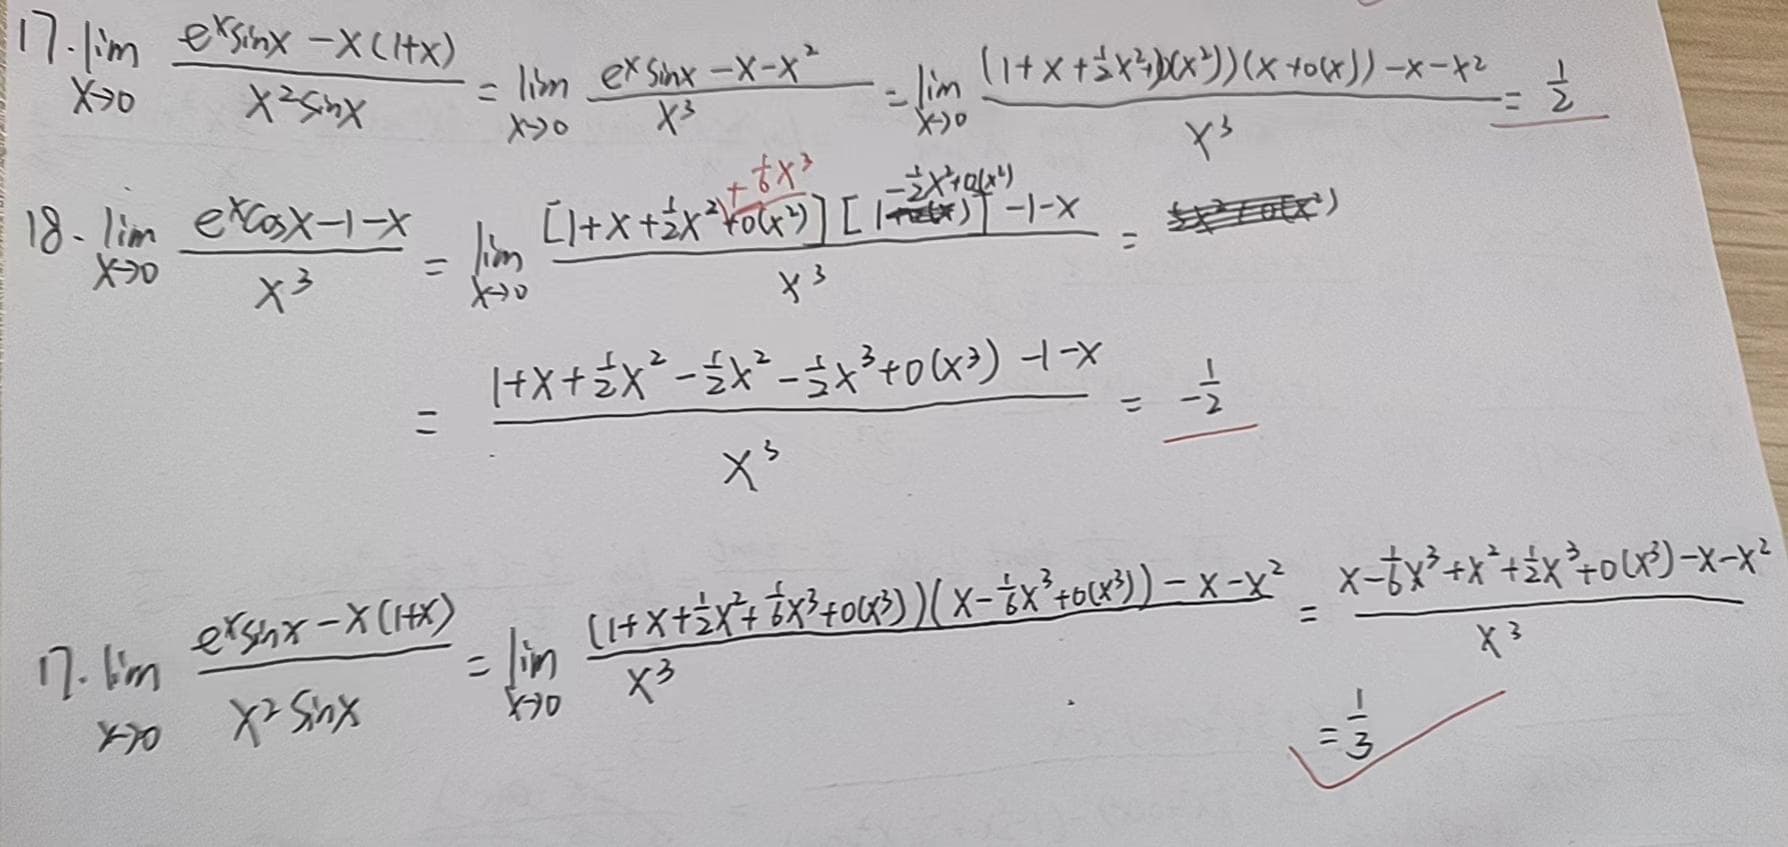 17. lim x→0 (e^x sinx - x(1+x)) / (x² sinx) = lim x→0 (e^x sinx - x - x²) / x³ = lim x→0 ((1+x+½x²+o(x²))(x+o(x)) - x - x²) / x³ = 1/2
18. lim x→0 (e^x cosx - 1 - x) / x³ = lim x→0 ([1+x+½x²+⅙x³+o(x²)][1-½x²+o(x²)] - 1 - x) / x³ =
= (1+x+½x²-½x²-½x³+o(x³) - 1 - x) / x³ = -1/2
17. lim x→0 (e^x sinx - x(1+x)) / (x² sinx) = lim x→0 ((1+x+½x²+⅙x³+o(x³))(x-⅙x³+o(x³)) - x - x²) / x³ = (x-⅙x³+x²+½x³+o(x³)-x-x²) / x³
= 1/3